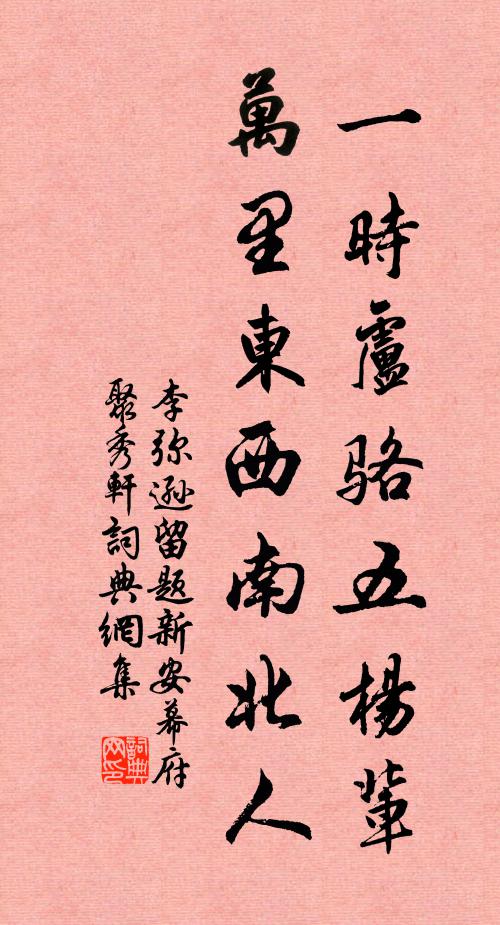 一時廬駱五楊輩
萬里東西南北人
李弥遜留题新安幕府
聚秀軒詞典網集
詞典网印